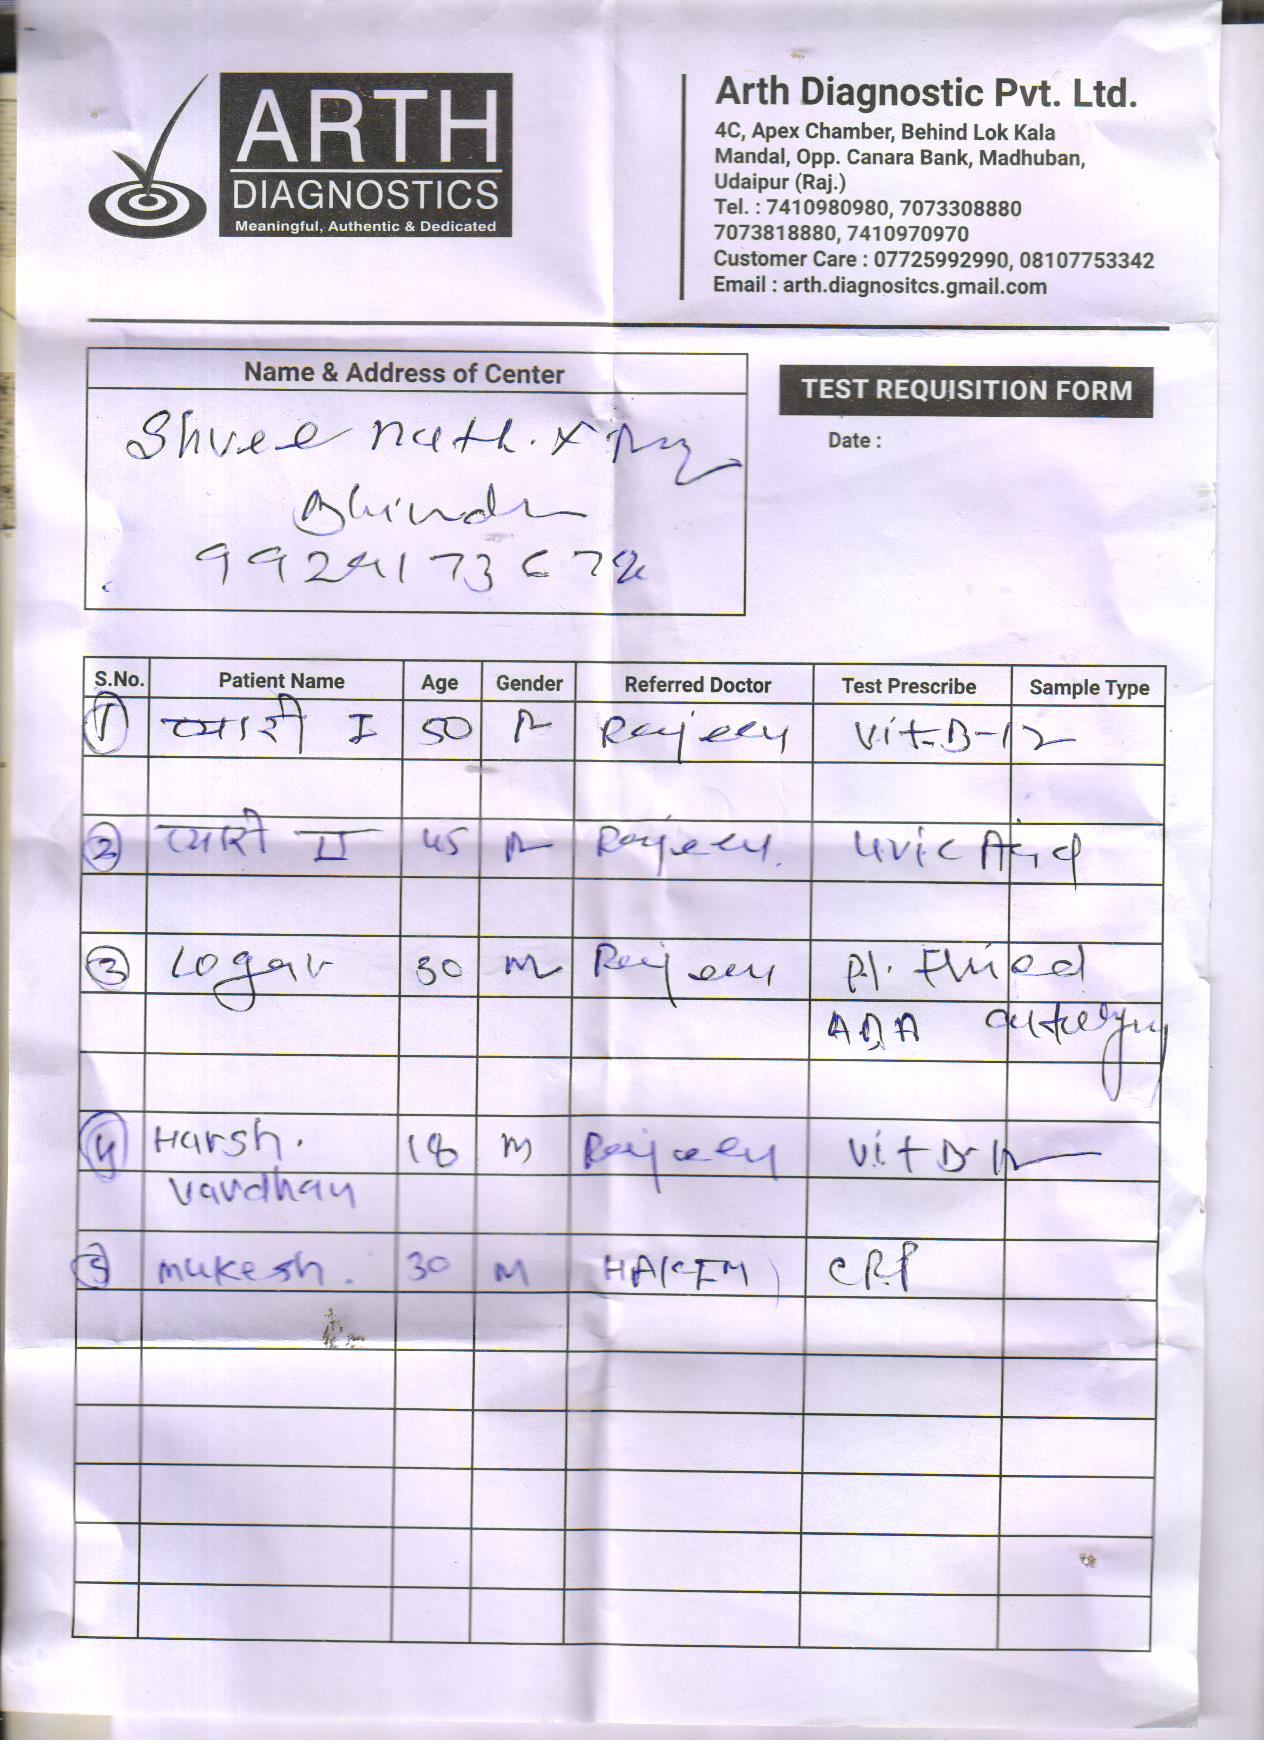 ARTH
DIAGNOSTICS
Meaningful, Authentic & Dedicated
Arth Diagnostic Pvt. Ltd.
4C, Apex Chamber, Behind Lok Kala
Mandal, Opp. Canara Bank, Madhuban,
Udaipur (Raj.)
Tel. : 7410980980, 7073308880
7073818880, 7410970970
Customer Care : 07725992990, 08107753342
Email : arth.diagnositcs.gmail.com
Name & Address of Center
TEST REQUISITION FORM
Date :
Shree nath. X
Bhinder
S.No. Patient Name Age Gender Referred Doctor Test Prescribe Sample Type
1 प्यारी I 50 Rajeev Vit-B-12
2 प्यारी II 45 Rajeev. Uric Acid
3 Logar 30 M Rajeev Pl. Fluied
ADA
4 Harsh. 18 M Rajeev Vit B-12
vardhan
5 Mukesh. 30 M HAKEM CRP